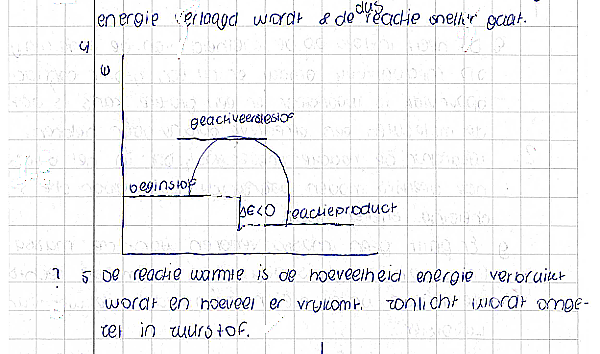 energie verlaagd wordt & de dus reactie sneller gaat.
4
geactiveerdestof
beginstof
ΔE<0 reactieproduct
? 5 De reactie warmte is de hoeveelheid energie verbruikt
wordt en hoeveel er vrijkomt. zonlicht wordt omge-
zet in zuurstof.